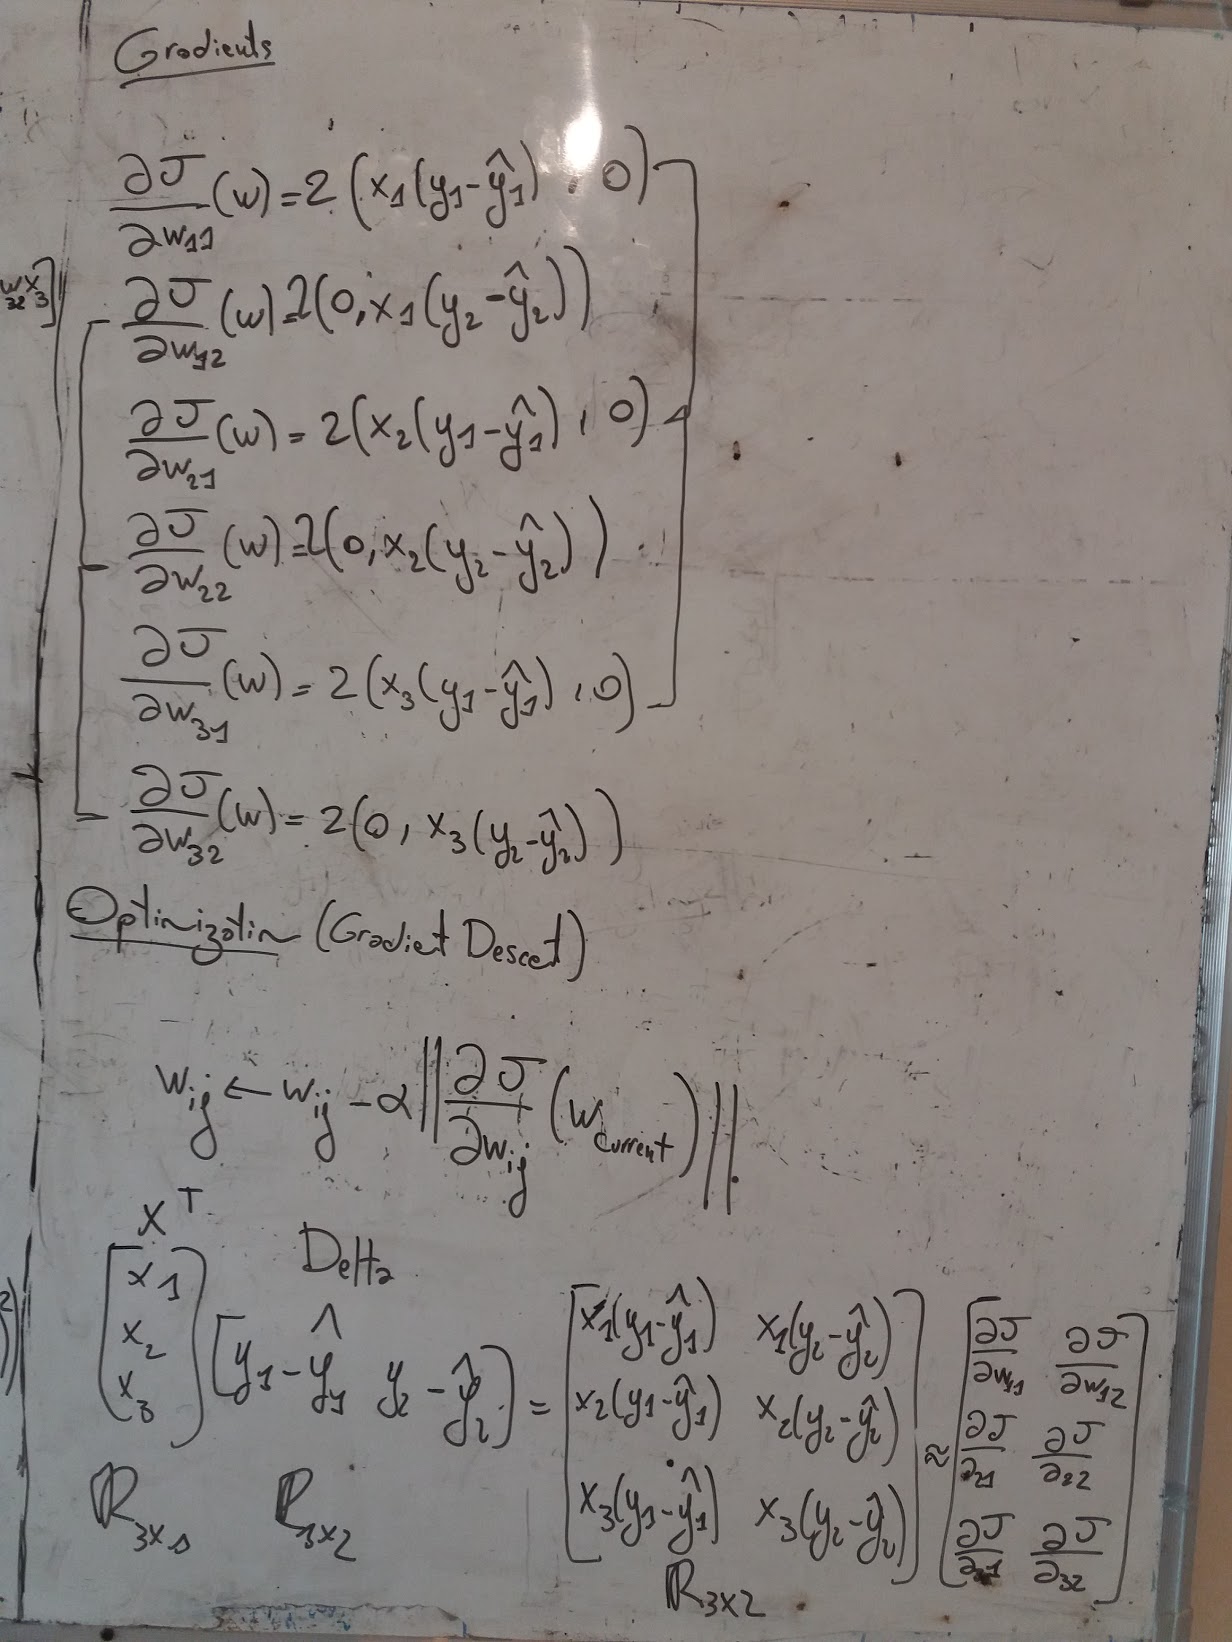 Gradients
∂J/∂w₁₁ (w) = 2 (x₁(y₁-ŷ₁) , 0)
w₃₂x₃]
∂J/∂w₁₂ (w) = 2(0, x₁(y₂-ŷ₂))
∂J/∂w₂₁ (w) = 2(x₂(y₁-ŷ₁) , 0)
∂J/∂w₂₂ (w) = 2(0, x₂(y₂-ŷ₂))
∂J/∂w₃₁ (w) = 2(x₃(y₁-ŷ₁) , 0)
∂J/∂w₃₂ (w) = 2(0, x₃(y₂-ŷ₂))
Optimization (Gradient Descent)
w_ij ← w_ij - α || ∂J/∂w_ij (w_current) ||
Xᵀ Delta
[x₁ x₂ x₃] [y₁-ŷ₁ y₂-ŷ₂] = [x₁(y₁-ŷ₁) x₁(y₂-ŷ₂) x₂(y₁-ŷ₁) x₂(y₂-ŷ₂) x₃(y₁-ŷ₁) x₃(y₂-ŷ₂)] ≈ [∂J/∂w₁₁ ∂J/∂w₁₂ ∂J/∂₂₁ ∂J/∂₂₂ ∂J/∂₃₁ ∂J/∂₃₂]
ℝ₃ₓ₁ ℝ₁ₓ₂ ℝ₃ₓ₂